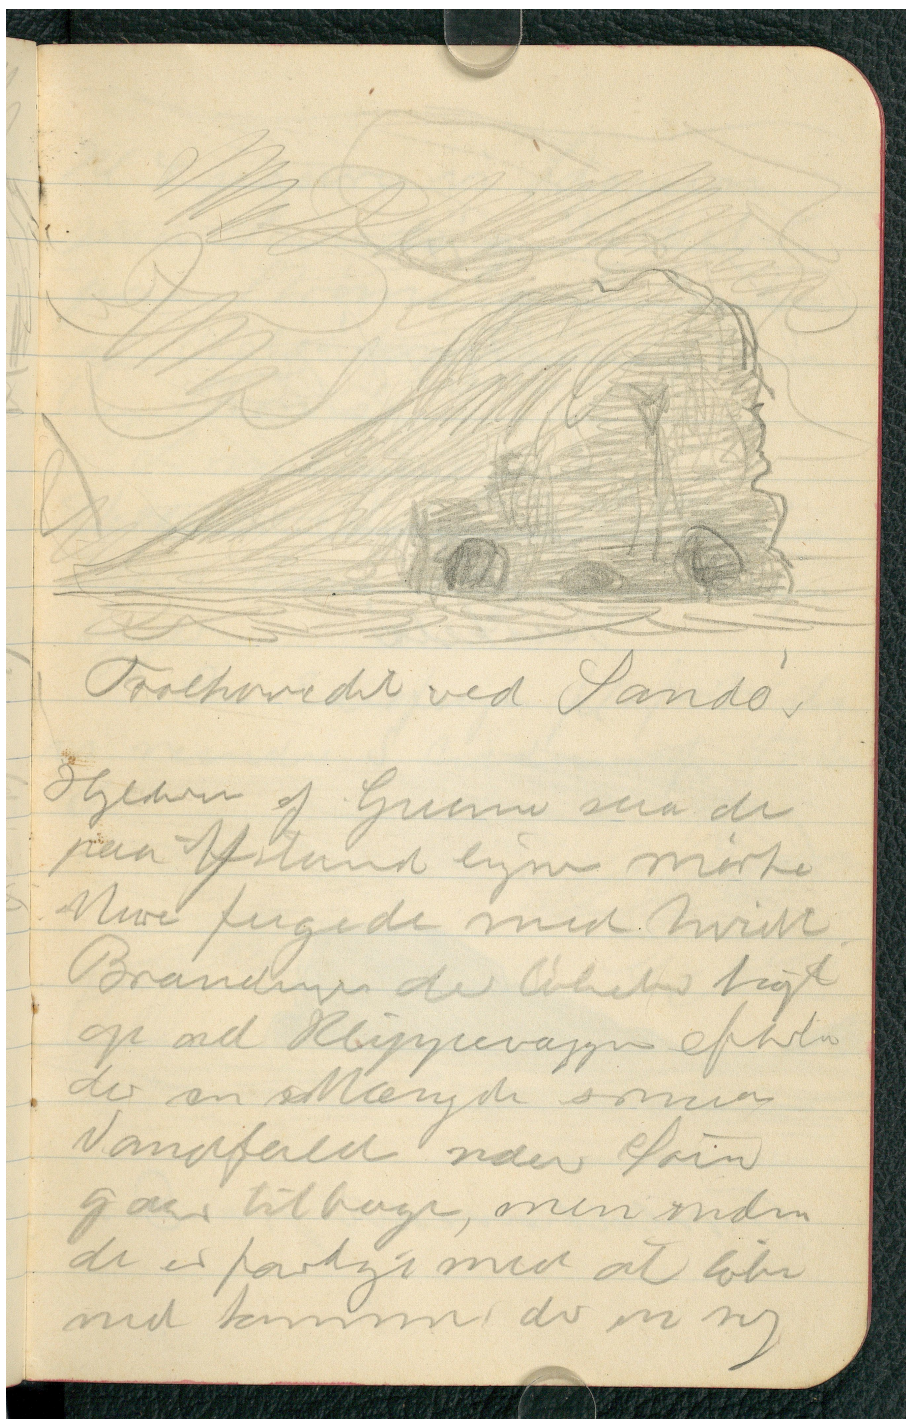 Troelhovedet ved Sandö,
af Grunnen saa de
paa Afstand ligner mörke
fugede med hvidt
Brændinger de höit
op ad Klippevæggen efterla
der en Mængde smaa
Vandfald naar Söen
gaar tilbage, men inden
de er færdige med at löbe
ned kommer der en ny